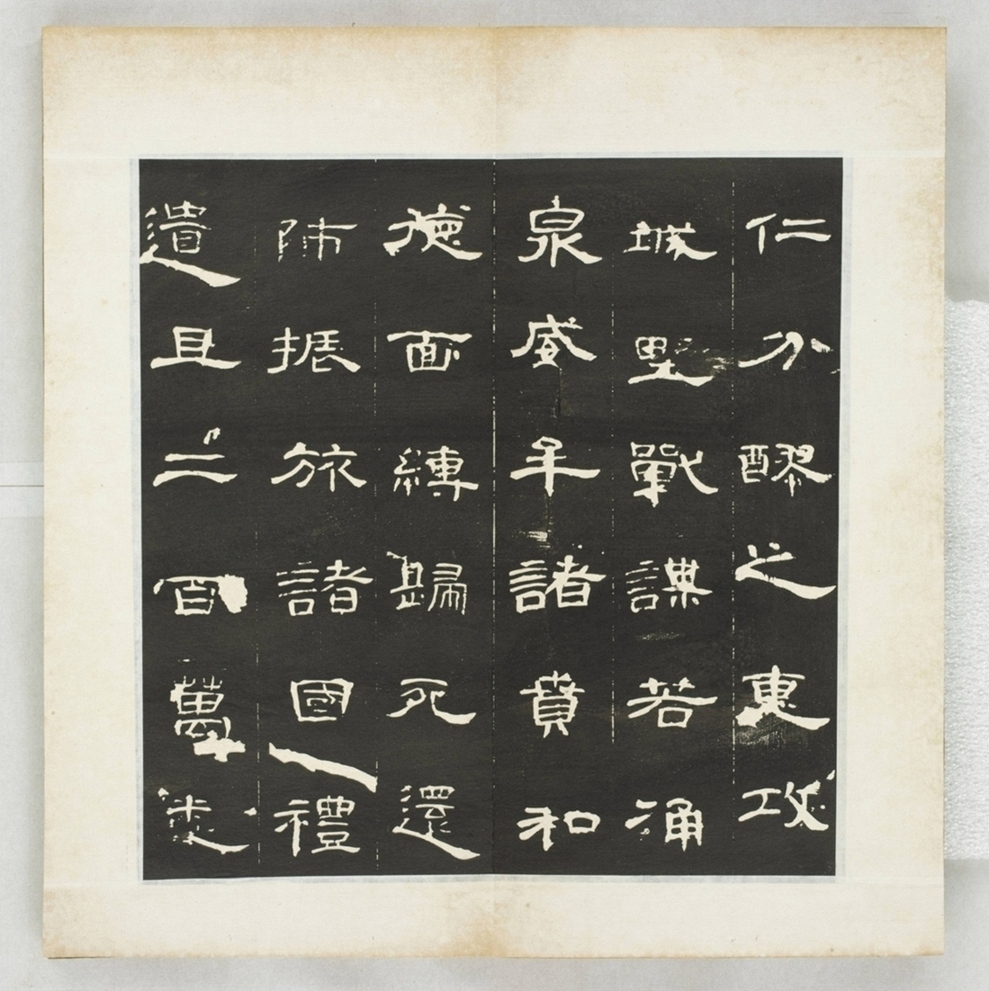 仁分醪之惠攻
城野戰謀若涌
泉威牟諸賁和
德面縛歸死還
師振旅諸國禮
遺且二百萬悉